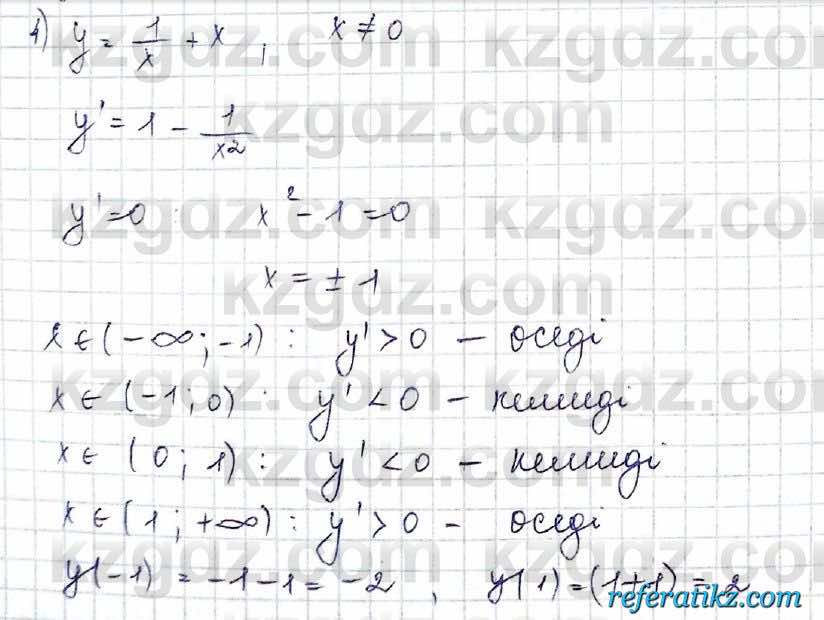 4) y = 1/x + x, x ≠ 0
y' = 1 - 1/x²
y' = 0 : x² - 1 = 0
x = ± 1
x ∈ (-∞; -1) : y' > 0 - өседі
x ∈ (-1; 0) : y' < 0 - кемиді
x ∈ (0; 1) : y' < 0 - кемиді
x ∈ (1; +∞) : y' > 0 - өседі
y(-1) = -1 - 1 = -2, y(1) = (1+1) = 2
kzgdz.com
referatikz.com